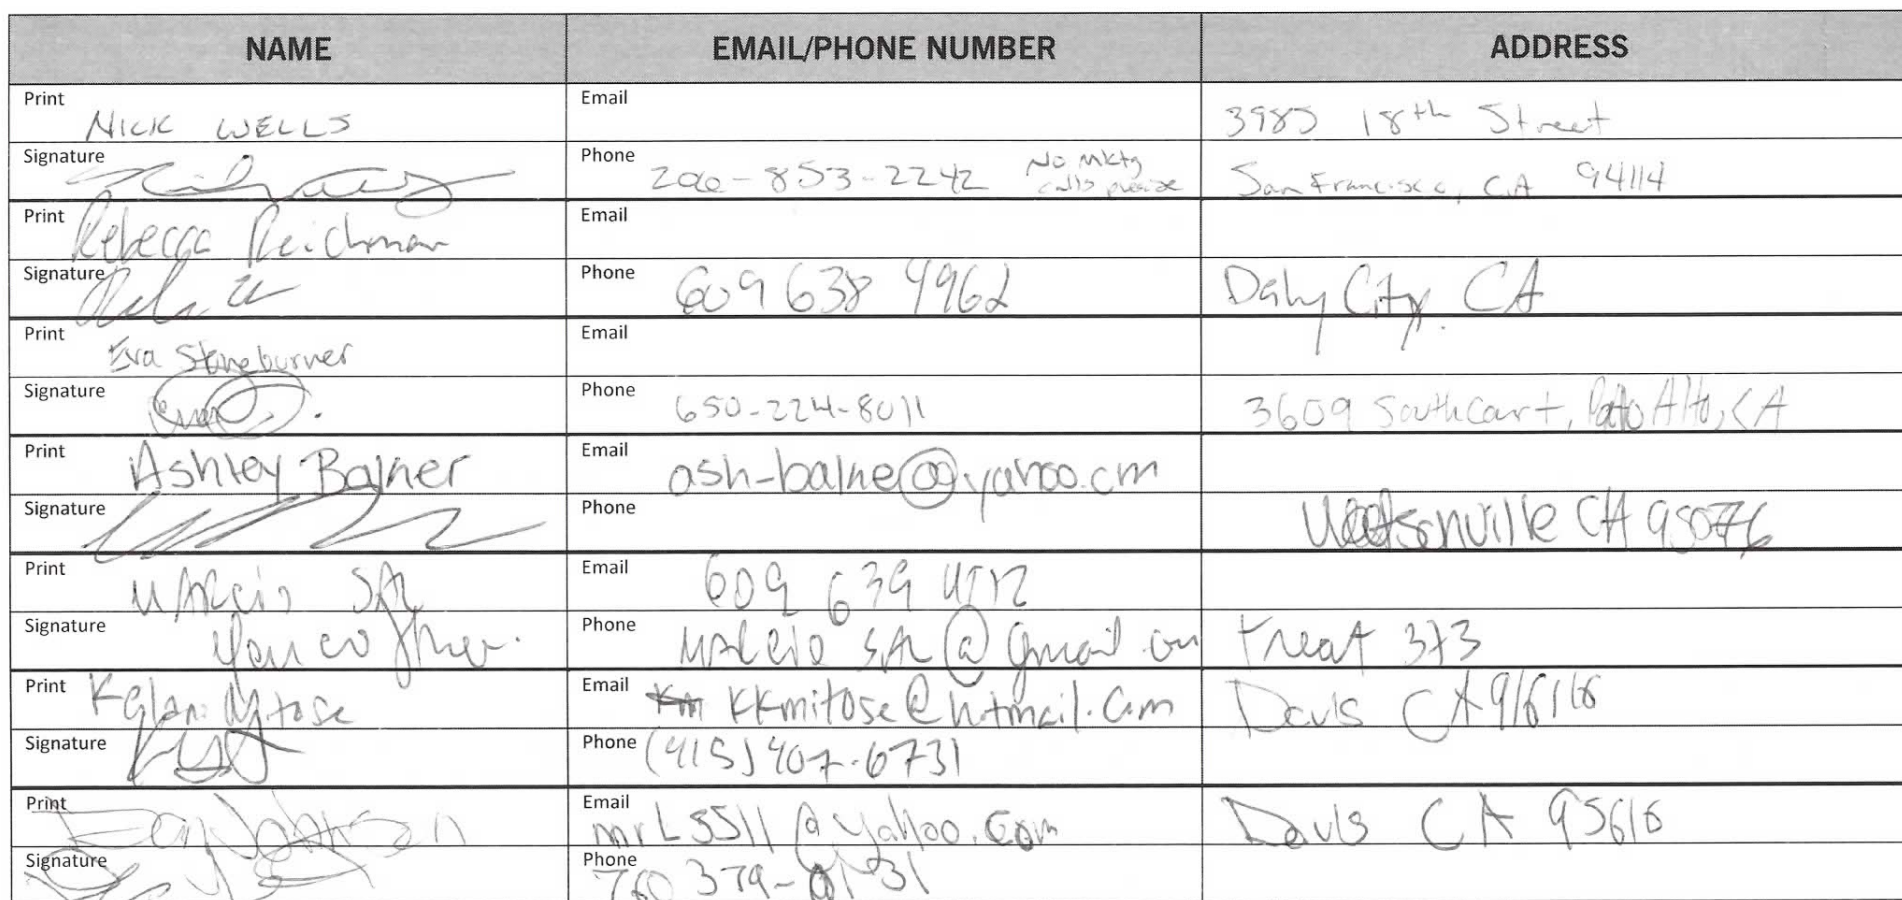 NAME EMAIL/PHONE NUMBER ADDRESS
Print NICK WELLS Email 3985 18th Street
Signature Phone 206-853-2242 No mktg calls please San Francisco, CA 94114
Print Rebecca Reichman Email
Signature Phone 609 638 4962 Daly City, CA
Print Eva Stoneburner Email
Signature Phone 650-224-8011 3609 Southcourt, Palo Alto, CA
Print Ashley Balner Email ash-balne@yahoo.cm
Signature Phone Watsonville CA 95076
Print Email 609 639
Signature Phone @gmail treat 373
Print Email KKmitose@hotmail.com Davis CA
Signature Phone (415) 407-6731
Print Johnson Email mrL5511@yahoo.com Davis CA 95616
Signature Phone 760 379-